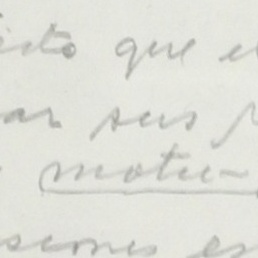 isto que e
ar sus
motu-
siones es